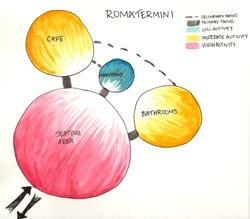 ROMA TERMINI
SECONDARY PATHS
PRIMARY PATHS
LOW ACTIVITY
MODERATE ACTIVITY
HIGH ACTIVITY
CAFE
BATHROOMS
SEATING
AREA